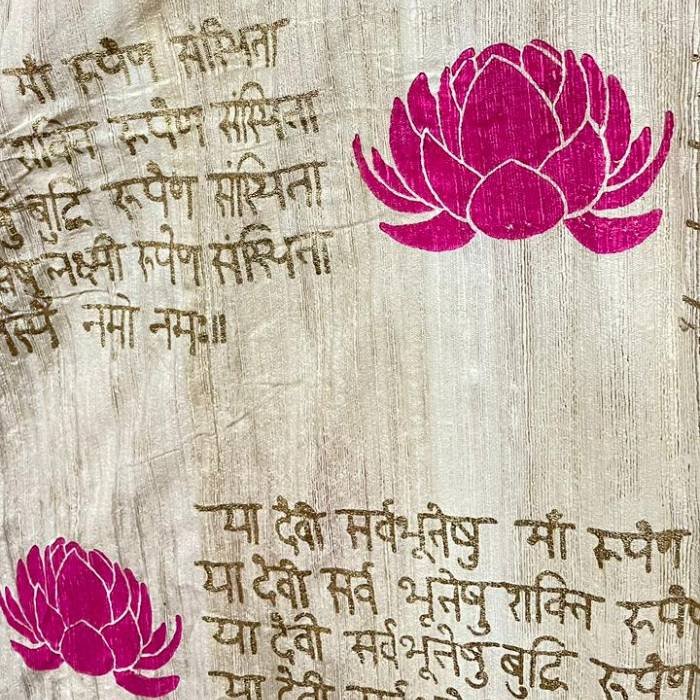 माँ रूपेण संस्थिता
शक्ति रूपेण संस्थिता
बुद्धि रूपेण संस्थिता
लक्ष्मी रूपेण संस्थिता
नमो नमः॥
या देवी सर्वभूतेषु माँ रूपेण
या देवी सर्व भूतेषु शक्ति
या देवी सर्वभूतेषु बुद्धि रूपेण
या देवी सर्व